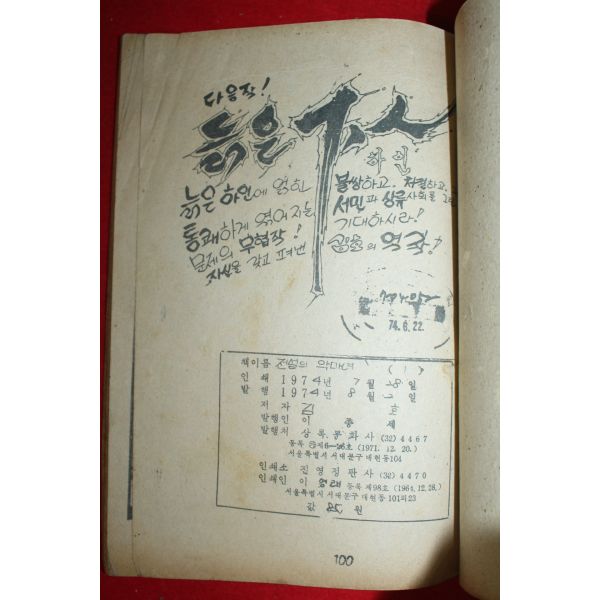 다음작!
늙은
하인
늙은 하인에 얽힌
통쾌하게 엮어지는
문제의 무협작!
자신을 갖고 펴낸
불쌍하고. 처절하고.
서민과 상류사회를
기대하시라!
의 역작!
74.6.22.
책이름 전설의 악마녀 (1)
인쇄 1974년 7월 28일
발행 1974년 8월 일
저자 김 호
발행인 이 종 제
발행처 상록문화사 (32) 4467
등록 제6-26호 (1971. 12. 20.)
서울특별시 서대문구 대현동104
인쇄소 진영정판사 (32) 4470
인쇄인 이 영래 등록 제98호 (1964. 12. 28.)
서울특별시 서대문구 대현동 101의23
값 85 원
100